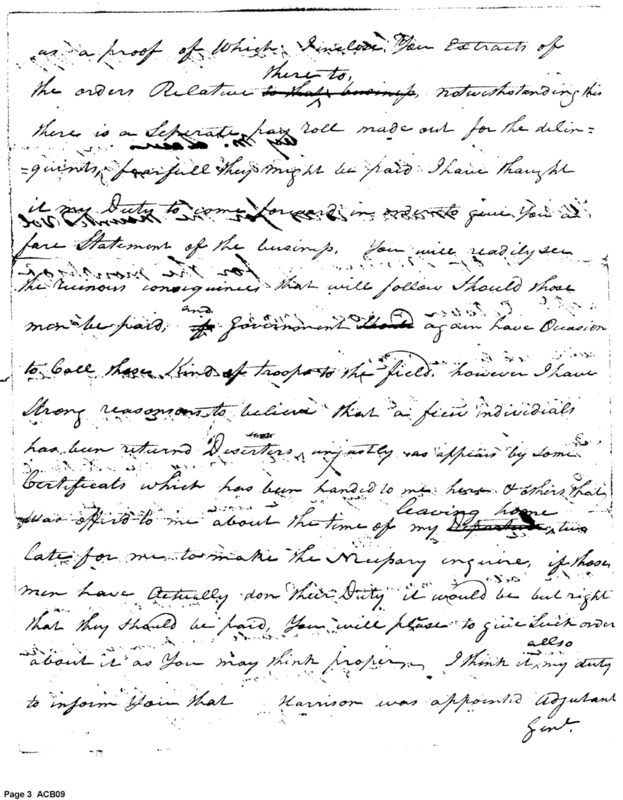 as a proof of Which I inclose You Extracts of
there to,
the orders Relative to that business, notwithstanding this
there is a Seperate pay roll made out for the delin=
=quints, fearfull they might be paid I have thought
it my Duty to come forward in order to give You a
fare Statement of the business, You will readily see
the ruinous consequinces that will follow Should those
and
men be paid, if Government Should again have Occasion
to Call those Kind of troops to the field. however I have
Strong reasonsons to believe that a few individials
has been returnd Deserters, unjustly as appears by some
Certificats which has been handed to me here & others that
leaving home
was offerd to me about the time of my Departure, two
late for me to make the Necessary inquire, if those
men have Actually don their Duty it would be but right
that they should be paid, You will please to give Such order
allso
about it as You may think proper, I think it my duty
to inform You that Harrison was appointed Adjutant
Genl.
Page 3 ACB09